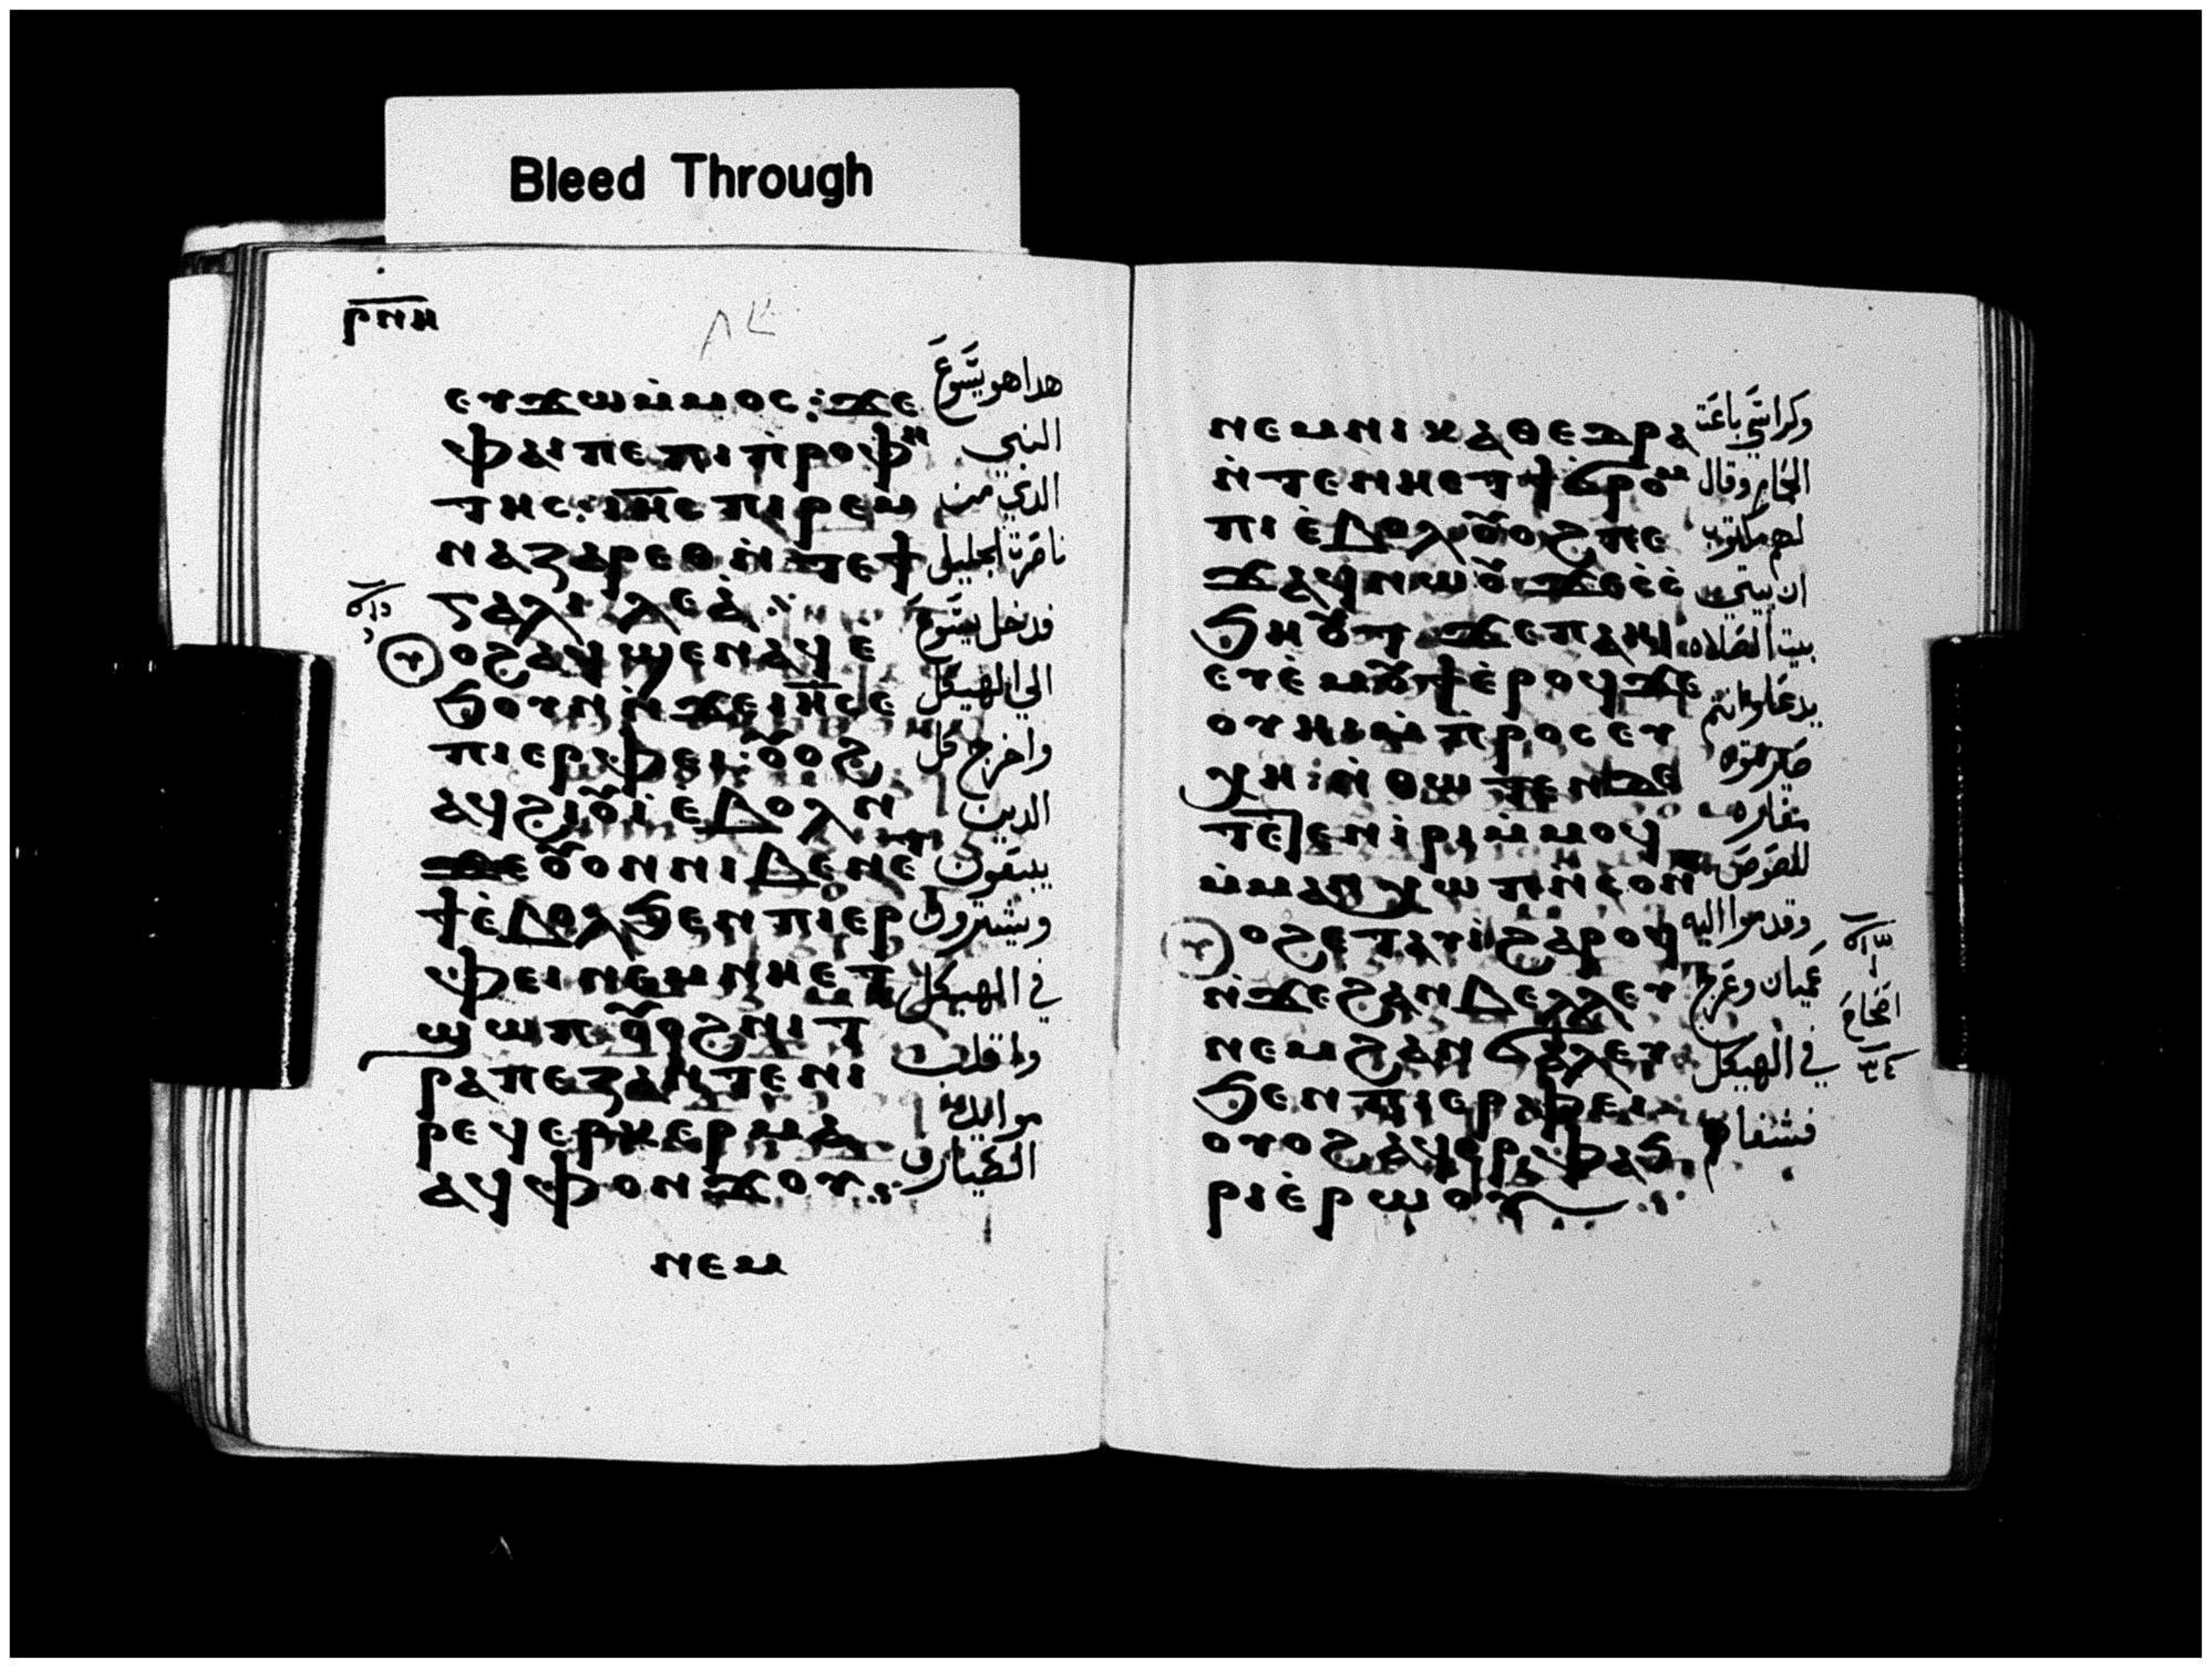 Bleed Through
ⲣⲛⲏ
ⲉⲩϫⲱⲙ̀ⲙⲟⲥ : ϫⲉ
ⲫⲁⲓⲡⲉⲡⲓⲡ̀ⲣⲟⲫⲏ
ⲧⲏⲥ : ⲓⲏ̅ⲥ ⲡⲓⲣⲉⲙ
ⲛⲁⲍⲁⲣⲉⲑ ⲛ̀ⲧⲉϯ
ⲅⲁⲗⲓⲗⲉⲁ̀ :
ⲟϩ ⲁϥϣⲉⲛⲁϥ ⲉ
ϧⲟⲩⲛ ⲛ̀ϫⲉⲓⲏ̅ⲥ ⲉ
ⲡⲓⲉⲣⲫⲉⲓ : ⲟⲩⲟϩ
ⲁϥϩⲓⲟⲩⲓ̀ ⲉⲃⲟⲗ ⲛ
ϫⲉ ⲟⲩⲟⲛ ⲛⲓⲃⲉⲛ ⲉ
ϯ ⲉ̀ⲃⲟⲗ ϧⲉⲛ ⲡⲓⲉⲣ
ⲫⲉⲓ ⲛⲉⲙ ⲛⲏⲉⲧ
ϣⲱⲡ ⲟⲩⲟϩ ⲛⲓⲧ
ⲣⲁⲡⲉⲍⲁ ⲛ̀ⲧⲉⲛⲓ
ⲣⲉϥⲉⲣⲕⲉⲣⲙⲁ
ⲁϥⲫⲟⲛϫⲟⲩ :
ⲛⲉⲙ
هدا هو يسوع
النبي
الدي من
ناصرة الجليل
فدخل يسوع
الي الهيكل
واخرج كل
الدين
يبيعون
ويشترون
في الهيكل
وا قلب
موايد
الصيارف
ⲛⲉⲙ ⲛⲓⲕⲁⲑⲉⲇⲣⲁ
ⲛ̀ⲧⲉⲛⲏⲉⲧϯϭⲣⲟⲙ
ⲡⲓ ⲉ̀ⲃⲟⲗ ⲟⲩⲟϩ ⲡⲉ
ϫⲁϥ ⲛⲱⲟⲩ ϫⲉ ⲥ̀ⲥ̀
ϧⲏⲟⲩⲧ ϫⲉ ⲡⲁⲏⲓ
ⲉⲩⲉ̀ⲙⲟⲩϯ ⲉ̀ⲣⲟϥ ϫⲉ
ⲟⲩⲏⲓ ⲙ̀ⲡⲣⲟⲥⲉⲩ
ⲭⲏ : ⲛ̀ⲑⲱⲧⲉⲛ ⲇⲉ
ⲧⲉⲧⲉⲛⲓ̀ⲣⲓ ⲙ̀ⲙⲟϥ
ⲙ̀ⲙⲁⲛⲭⲱⲡ ⲛ̀ⲥⲟⲛ
ⲟϩ ⲉⲧⲁⲩⲓ̀ ϩⲁⲣⲟϥ
ⲛ̀ϫⲉϩⲁⲛⲃⲉⲗⲗⲉⲩ
ⲛⲉⲙ ϩⲁⲛϭⲁⲗⲉⲩ
ϧⲉⲛ ⲡⲓⲉⲣⲫⲉⲓ
ⲟⲩⲟϩ ⲁϥⲉⲣⲫⲁϧ
ⲣⲓ ⲉ̀ⲣⲱⲟⲩ
وكراسي باعت
الحمام وقال
لهم مكتوب
ان بيتي
بيت الصلاه
يدعا وانتم
صيرتموه
مغاره
للصوص
وقدموا اليه
عميان وعرج
في الهيكل
فشفاهم
اصحاح